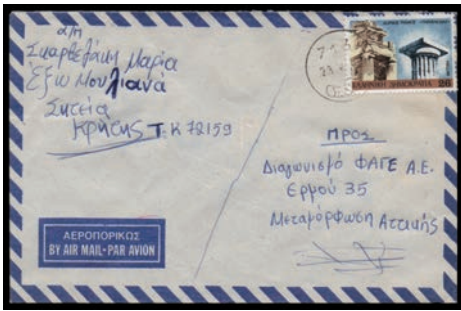 α/π
Σκαρβελάκη Μαρία
Έξω Μουλιανά
Σητεία
Κρήτης Τ.Κ 72159
ΠΡΟΣ
Διαγωνισμό ΦΑΓΕ Α.Ε.
Ερμού 35
Μεταμόρφωση Αττικής
ΑΕΡΟΠΟΡΙΚΩΣ
BY AIR MAIL-PAR AVION
ΕΛΛΗΝΙΚΗ ΔΗΜΟΚΡΑΤΙΑ